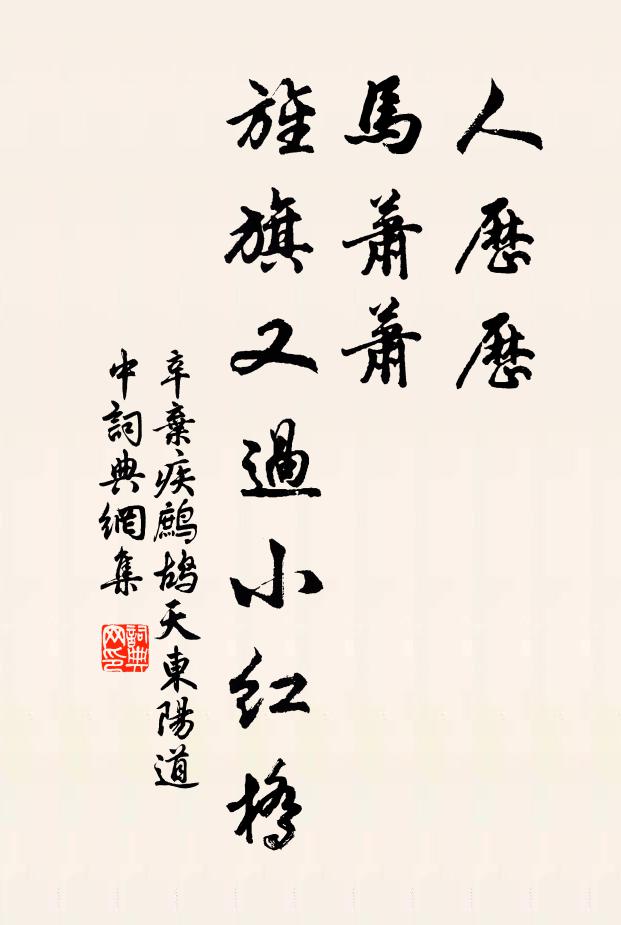 人歷歷
馬蕭蕭
旌旗又過小紅橋
辛棄疾鷓鴣天東陽道
中詞典網集
詞典
网印